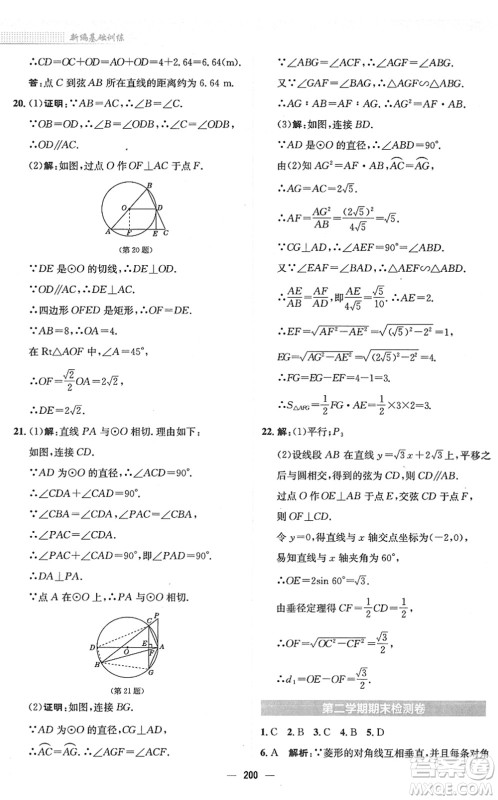 新编基础训练
∴CO+OD=CO+AD=OA+AD+OD=4+2.64=6.64(m).
答:点 C 到弦 AB 所在直线的距离约为 6.64 m.
20.(1)证明:∵AB=AC,∴∠ABC=∠ACB.
∵OB=OD,∴∠OBD=∠ODB.∴∠ACB=∠ODB.
∴OD∥AC.
(2)解:如图,过点 O 作 OF⊥AC 于点 F.
B
O
D
A
F
E
C
(第 20 题)
∵DE 是⊙O 的切线,∴DE⊥OD.
∵OD∥AC,∴DE⊥AC.
∴四边形 OFED 是矩形.∴OF=DE.
∵AB=8,∴OA=4.
在 Rt△AOF 中,∠A=45°.
∴OF=√2/2 OA=2√2.
∴DE=2√2.
21.(1)解:直线 PA 与⊙O 相切.理由如下:
如图,连接 CD.
∵AD 为⊙O 的直径,∴∠ACD=90°.
∴∠CDA+∠CAD=90°.
∵∠CDA=∠CBA,∠CBA=∠CAP,
∴∠CDA=∠CAP.
∴∠CAP+∠CAD=90°,即∠DAP=90°.
∴DA⊥PA.
∵点 A 在⊙O 上,∴直线 PA 与⊙O 相切.
(第 21 题)
(2)证明:∵AD 为⊙O 的直径,CG⊥AD,
∴AC=AG.∴∠AGF=∠ABG.
又∵∠GAF=∠BAG,∴△AGF∽△ABG.
∴AG:AB=AF:AG.∴AG²=AF·AB.
(3)解:如图,连接 BD.
∵AD 是⊙O 的直径,∴∠ABD=90°.
由(2)知 AG²=AF·AB,AC=AG,
∴AG=AC=2√5.
∴AF=AG²/AB=(2√5)²/4√5=√5.
∵CG⊥AD,∴∠AEF=∠ABD=90°.
又∵∠EAF=∠BAD,∴△AEF∽△ABD.
∴AE/AB=AF/AD,即AE/4√5=√5/10.∴AE=2.
∴EF=√(AF²−AE²)=√((√5)²−2²)=1,
EG=√(AG²−AE²)=√((2√5)²−2²)=4.
∴FG=EG−EF=4−1=3.
∴S△AFG=1/2 FG·AE=1/2×3×2=3.
22.解:(1)平行;P₃
(2)设线段 AB 在直线 y=√3x+2√3上,平移之
后与圆相交,得到的弦为 CD,CD∥AB,
过点 O 作 OE⊥AB 于点 E,交弦 CD 于点 F,
∴OF⊥CD.
令 y=0,得直线与 x 轴交点坐标为(−2,0).
易知直线与 x 轴夹角为 60°,
∴OE=2sin 60°=√3.
由垂径定理得 CF=1/2CD=1/2.
∴OF=√(OC²−CF²)=√3/2.
∴d₁=OE−OF=√3/2.
第二学期期末检测卷
1.C 2.B 3.C 4.B 5.D
6.A 解析:∵菱形的对角线互相垂直,并且每条对角
200
答案圈